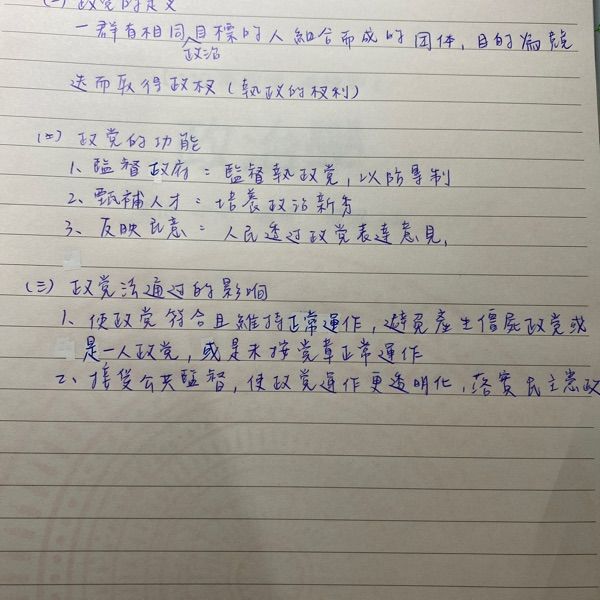 (一) 政党的定义
一群有相同政治目標的人組合而成的团体，目的為競
选而取得政权（執政的权利）
(二) 政党的功能
1、監督政府：監督執政党，以防專制
2、甄補人才：培養政治新秀
3、反映民意：人民透过政党表達意見，
(三) 政党法通过的影响
1、使政党符合且維持正常運作，避免產生僵屍政党或
是一人政党，或是未按党章正常運作
2、接受公共監督，使政党運作更透明化，落實民主憲政